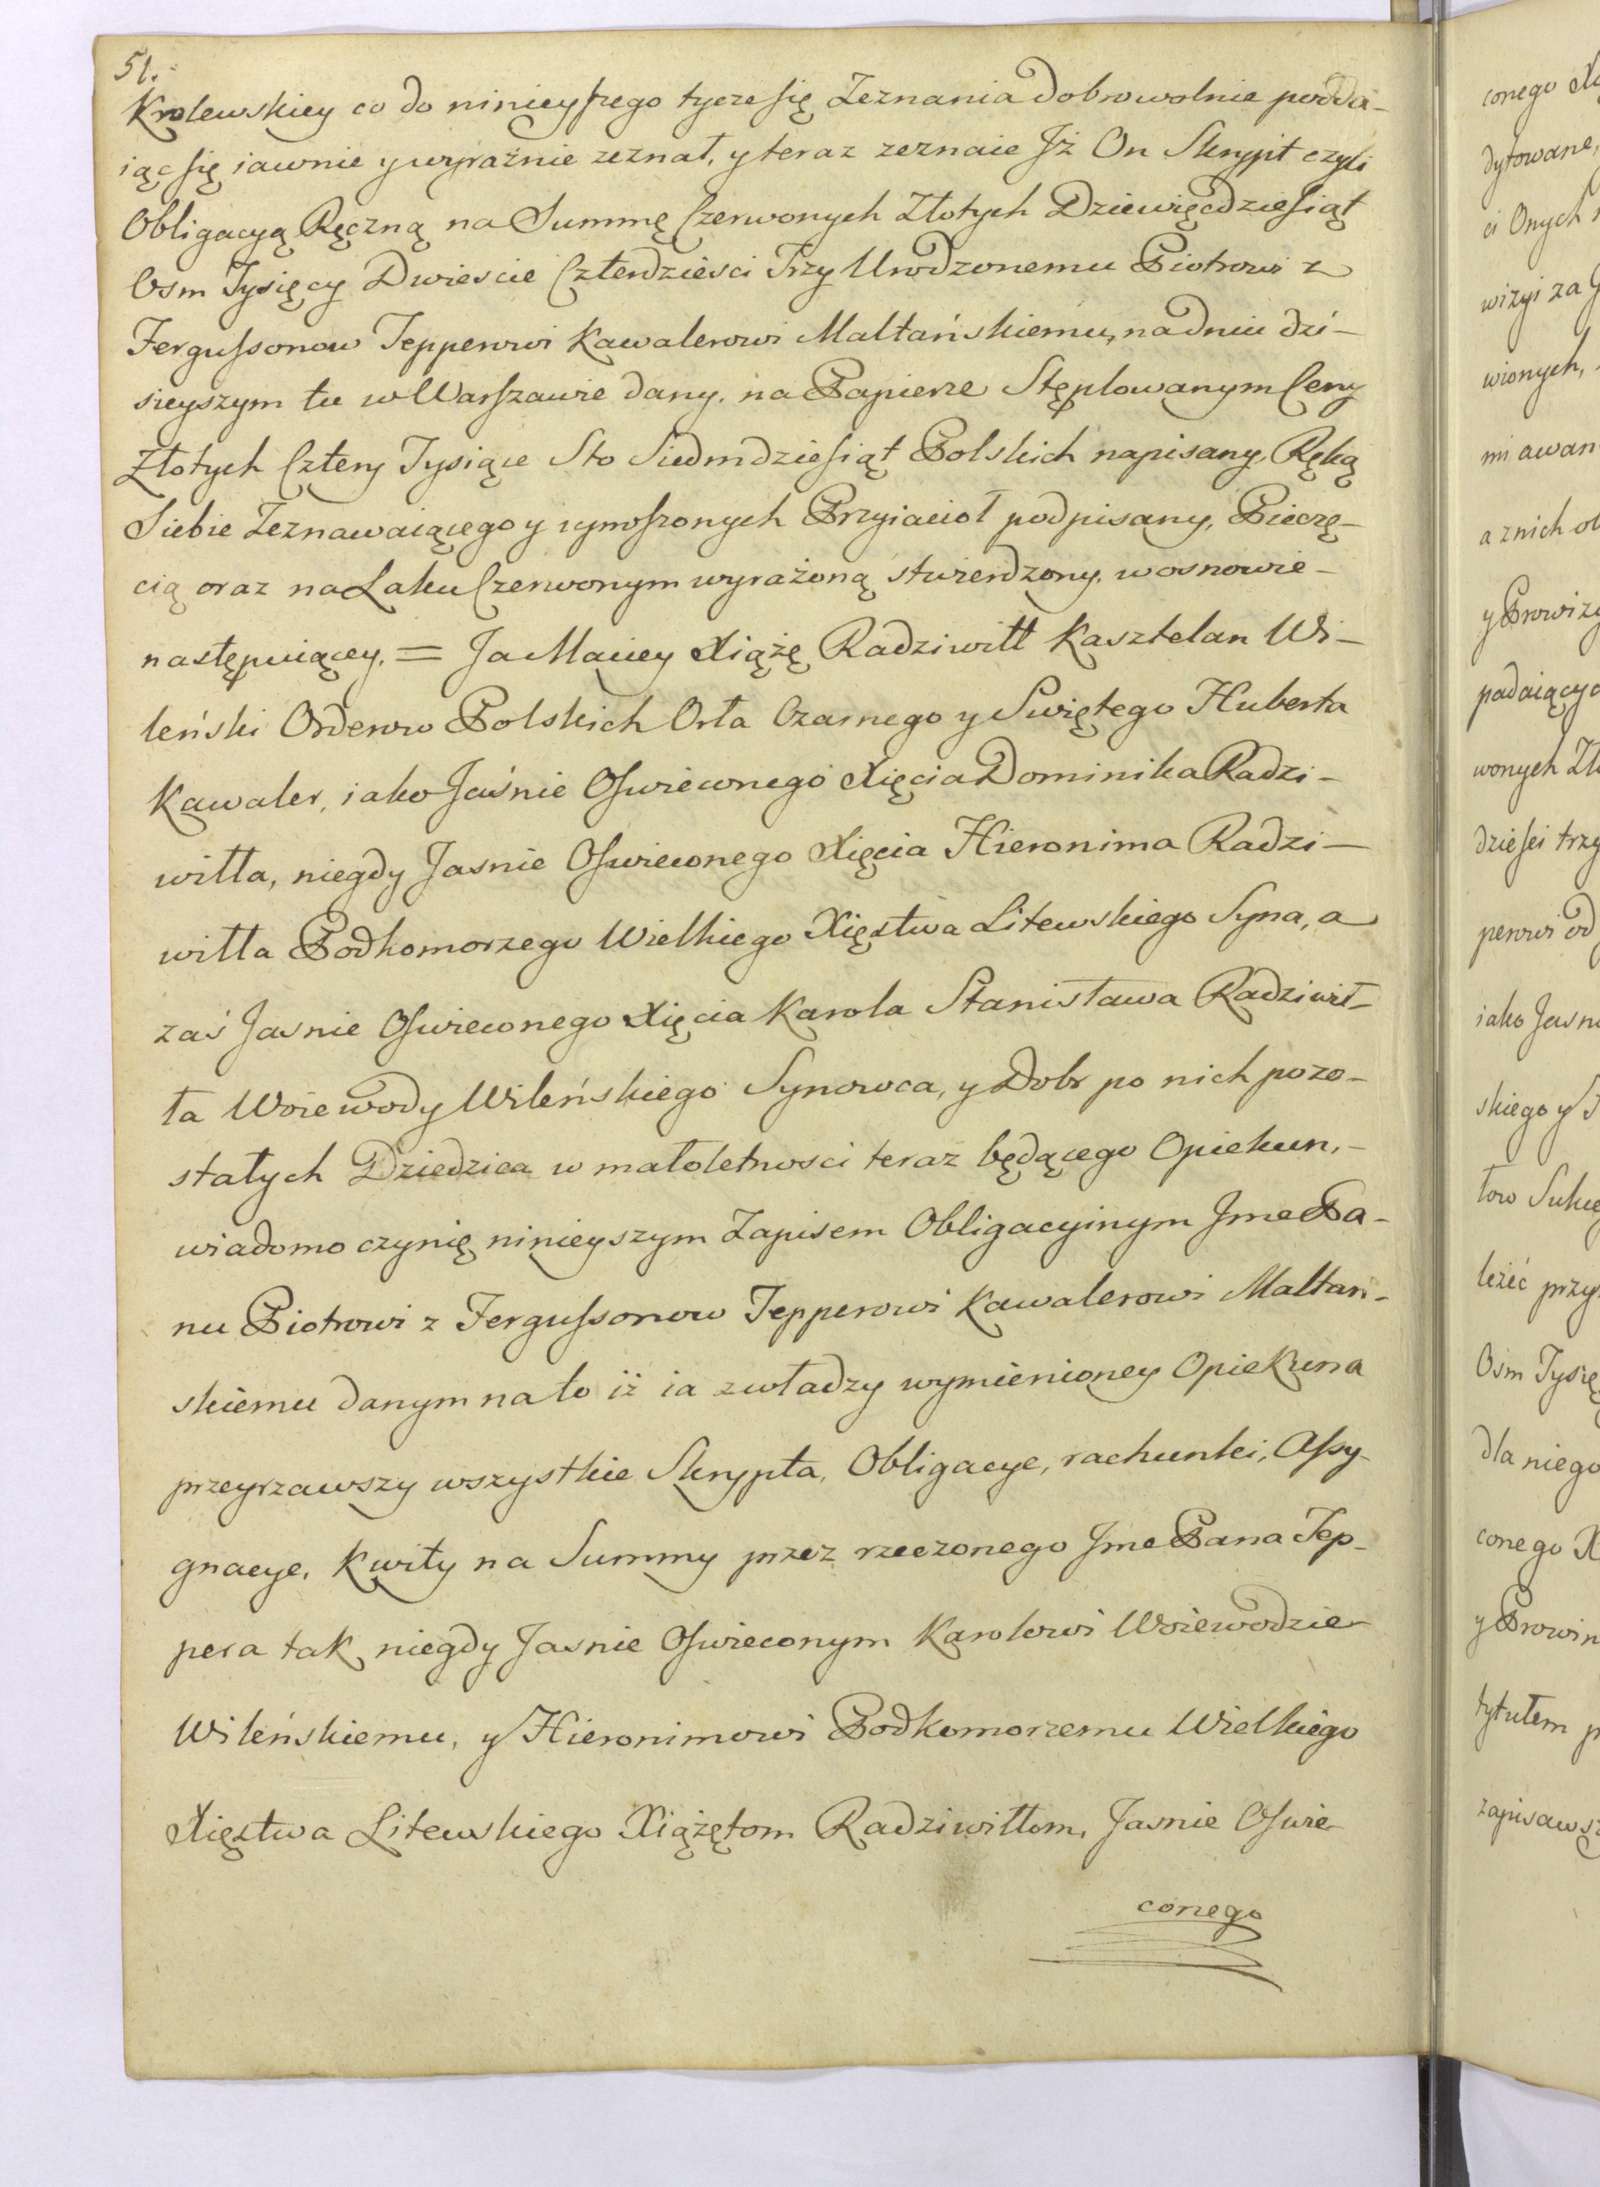 51.
Krolewskiey co do ninieyszego tycze się Zeznania dobrowolnie podda-
iąc się iawnie y wyraźnie zeznał, y teraz zeznaie Jż On Skrypt czyli
Obligacyą Ręczną na Summę Czerwonych Złotych Dziewięćdziesiąt
Osm Tysięcy Dwiescie Czterdziesci Trzy Urodzonemu Piotrowi z
Fergussonow Tepperowi Kawalerowi Maltańskiemu, na dniu dzi-
sieyszym tu w Warszawie dany, na Papierze Stęplowanym Ceny
Złotych Cztery Tysiące Sto Siedmdziesiąt Polskich napisany, Ręką
Siebie Zeznawaiącego y uproszonych Przyiacioł podpisany, Pieczę-
cią oraz na Laku Czerwonym wyrażoną stwierdzony, w osnowie
następuiącey. = Ja Maciey Xiążę Radziwiłł Kasztelan Wi-
leński Orderow Polskich Orła Czarnego y Swiętego Huberta
Kawaler, iako Jaśnie Oswieconego Xięcia Dominika Radzi-
wiłła, niegdy Jasnie Oswieconego Xięcia Hieronima Radzi-
wiłła Podkomorzego Wielkiego Xięztwa Litewskiego Syna, a
zaś Jasnie Oswieconego Xięcia Karola Stanisława Radziwił-
ła Woiewody Wileńskiego Synowca, y Dobr po nich pozo-
stałych Dziedzica w małoletnosci teraz będącego Opiekun,-
wiadomo czynię ninieyszym Zapisem Obligacyinym Jme Pa-
nu Piotrowi z Fergussonow Tepperowi Kawalerowi Maltań-
skiemu danym na to iż ia z władzy wymienioney Opiekuna
przeyrzawszy wszystkie Skrypta, Obligacye, rachunki, Assy-
gnacye, Kwity na Summy przez rzeczonego Jme Pana Tep-
pera tak niegdy Jasnie Oswieconym Karolowi Woiewodzie
Wileńskiemu, y Hieronimowi Podkomorzemu Wielkiego
Xięztwa Litewskiego Xiążętom Radziwiłłom, Jasnie Oswie-
conego